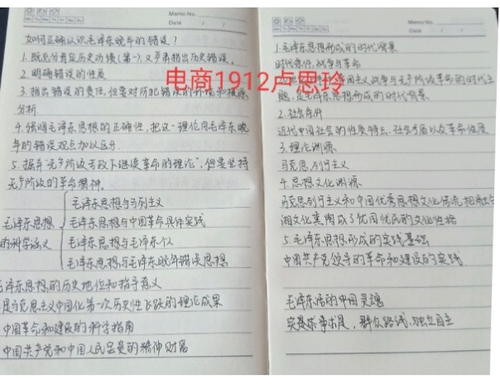 Memo No.
Date / /
如何正确认识毛泽东晚年的错误?
1.既充分肯定历史功绩(第一)又严肃指出历史错误。
2.明确错误的性质
3.指出错误的责任,注重对所犯错误的
分析
4.强调毛泽东思想的正确性,把这一理论同毛泽东晚
年的错误观点加以区分.
5.摒弃"无产阶级专政下继续革命的理论",但要坚持
无产阶级的革命精神.
毛泽东思想与马列主义
毛泽东思想与中国革命具体实践
毛泽东思想
的科学涵义
毛泽东思想与毛泽东个人
毛泽东思想与毛泽东晚年错误思想
毛泽东思想的历史地位和指导意义
是马克思主义中国化第一次历史性飞跃的理论成果
中国革命和建设的科学指南
中国共产党和中国人民宝贵的精神财富
Memo No.
Date / /
1.毛泽东思想形成的时代背景
时代条件,战争与革命
主义战争与无产阶级革命的时代主
题,是毛泽东思想形成的时代背景
2.社会条件
近代中国社会的性质特点,社会矛盾以及革命
3.理论渊源
马克思列宁主义
4.思想文化渊源
马克思列宁主义和中国优秀思想文化传统
湖文化
5.毛泽东思想形成的实践基础
中国共产党领导的革命和建设的实践
毛泽东活的中国灵魂
实事求是,群众路线,独立自主
电商1912卢思玲